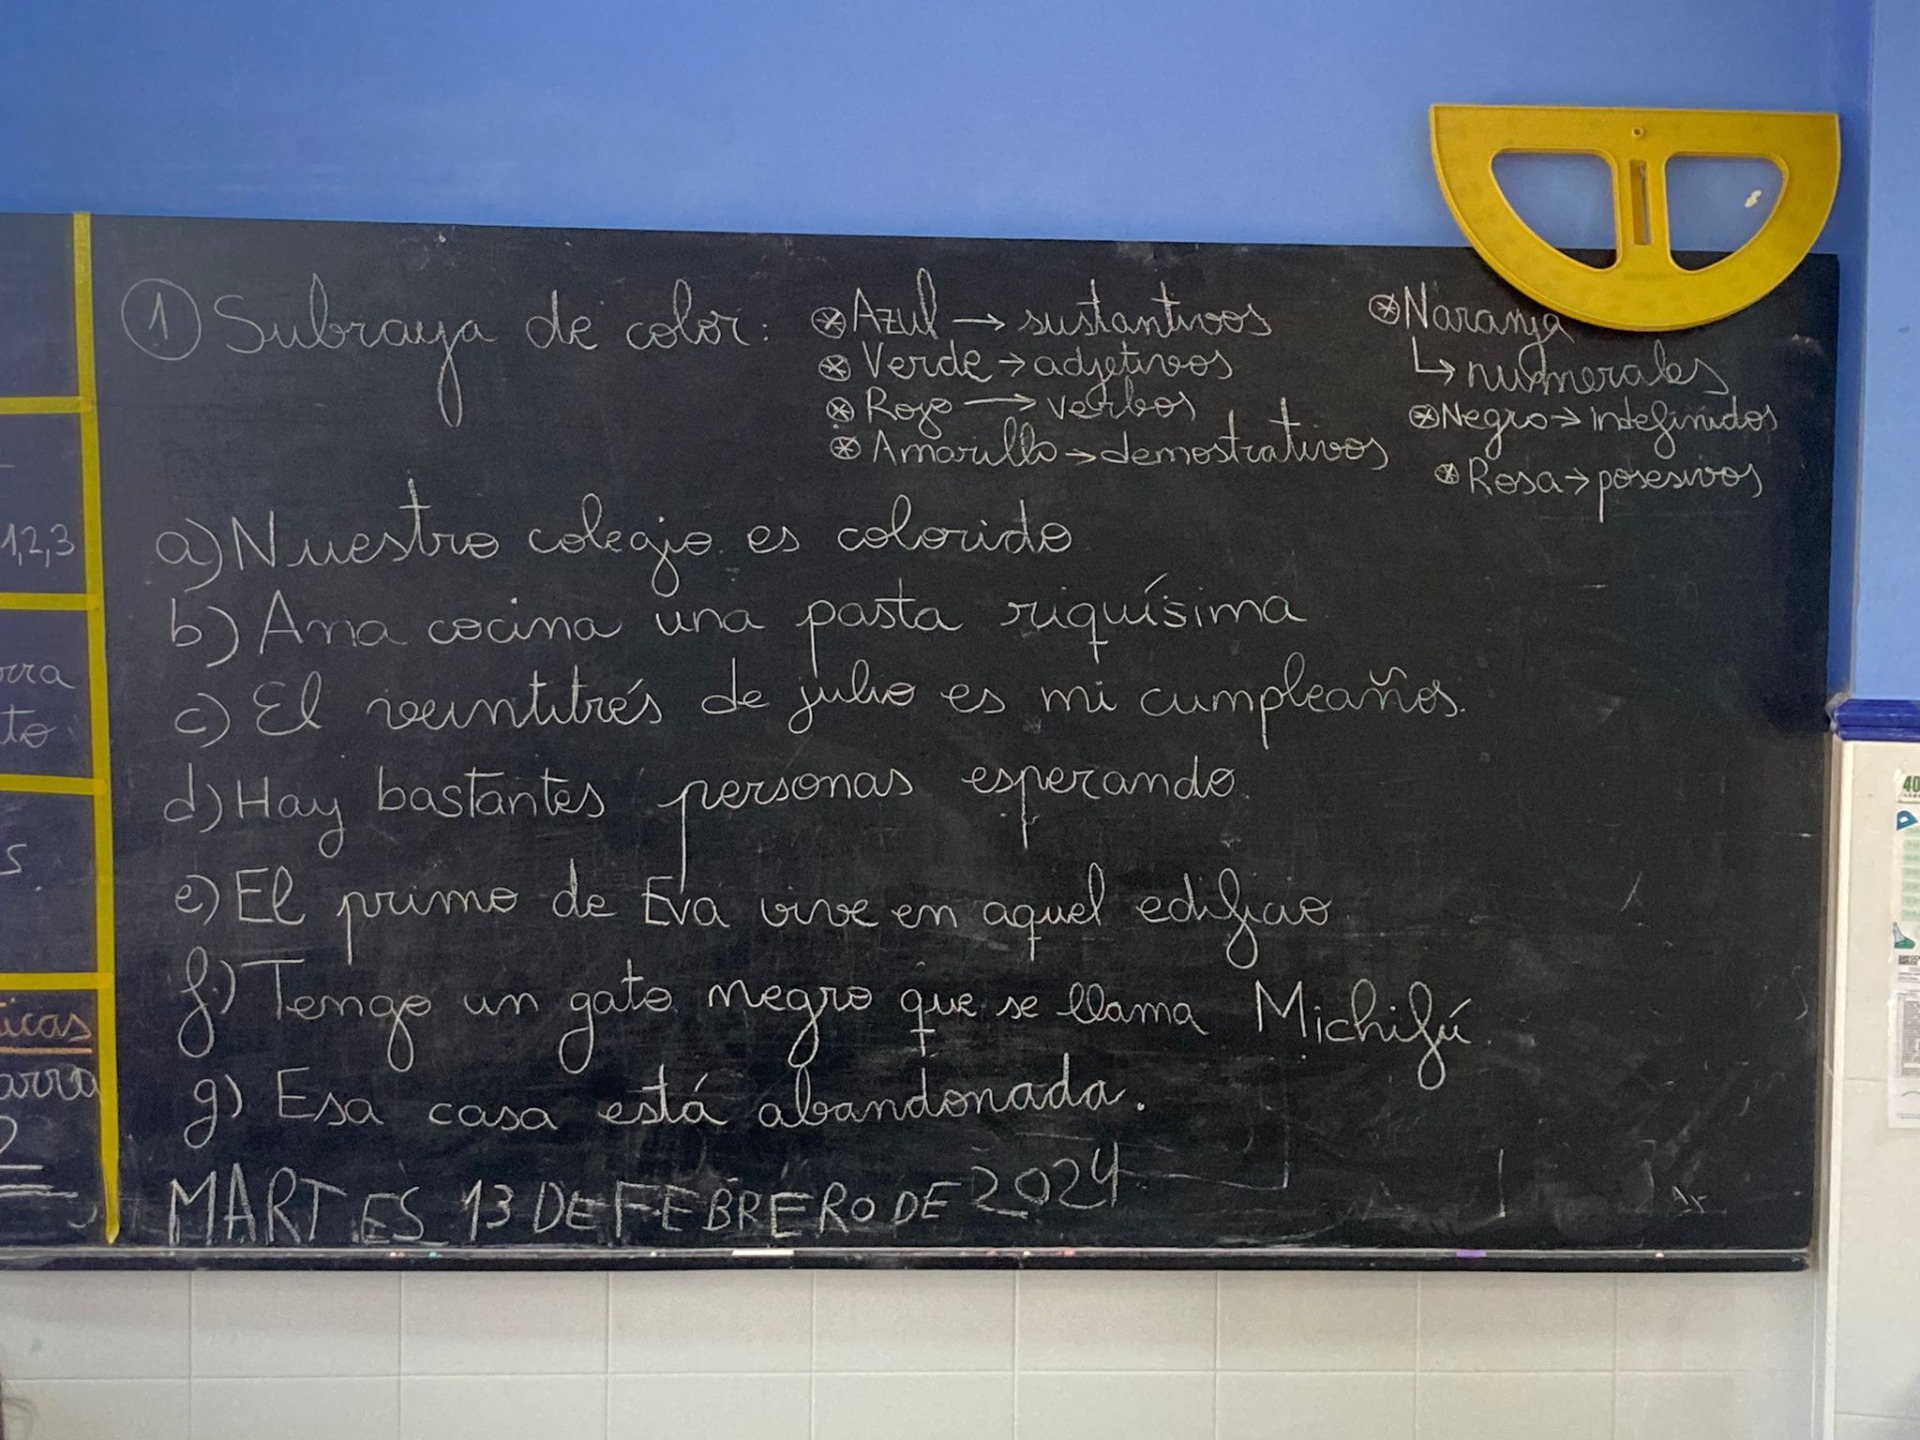 ① Subraya de color:
⊛ Azul → sustantivos
⊛ Verde → adjetivos
⊛ Rojo → verbos
⊛ Amarillo → demostrativos
⊛ Naranja
↳ numerales
⊛ Negro → indefinidos
⊛ Rosa → posesivos
a) Nuestro colegio es colorido
b) Ana cocina una pasta riquísima
c) El veintitrés de julio es mi cumpleaños.
d) Hay bastantes personas esperando.
e) El primo de Eva vive en aquel edificio
f) Tengo un gato negro que se llama Michifú.
g) Esa casa está abandonada.
MARTES 13 DE FEBRERO DE 2024
1,2,3
rra
to
s.
icas
arra
2
40